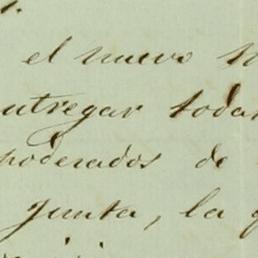 el nuevo
ntregar toda
poderados de
Junta, la